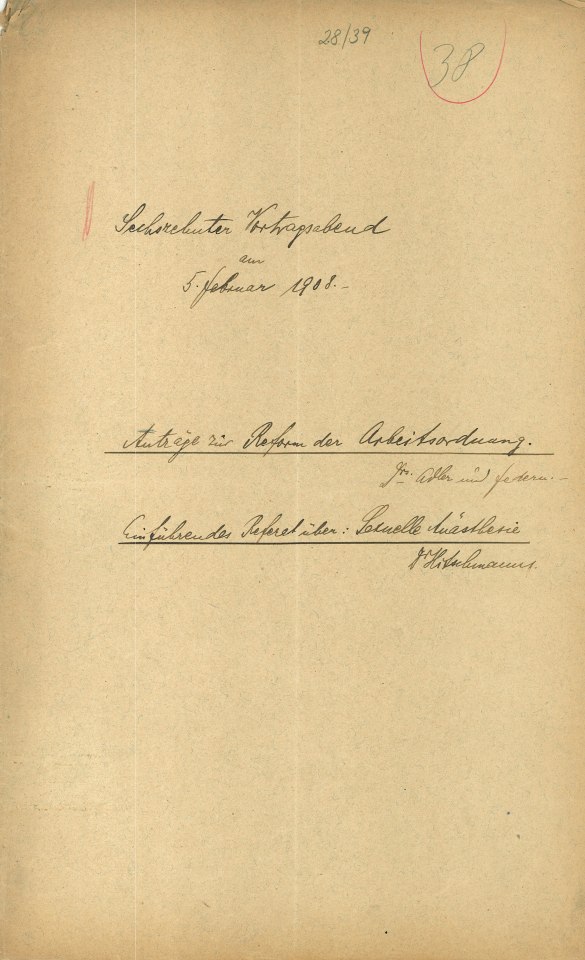 28/39
38
Sechszehnter Vortragsabend
am
5. Februar 1908.-
Anträge zur Reform der Arbeitsordnung.
Drs. Adler und Federn.-
Einführendes Referat über: Sexuelle Anästhesie
Dr Hitschmanns.